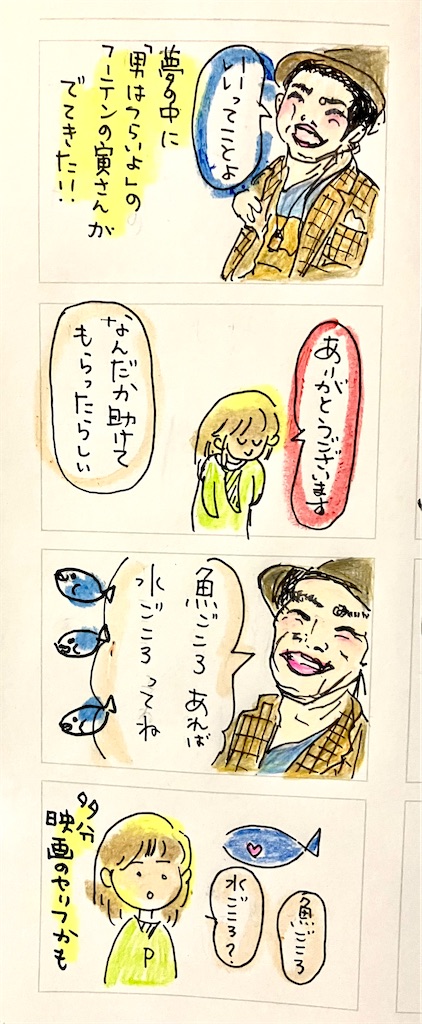 夢の中に
「男はつらいよ」の
フーテンの寅さんが
でてきた!!
いいってことよ
ありがとうございます
なんだか助けて
もらったらしい
魚ごころあれば
水ごころってね
魚ごころ
水ごころ?
P
多分
映画のセリフかも